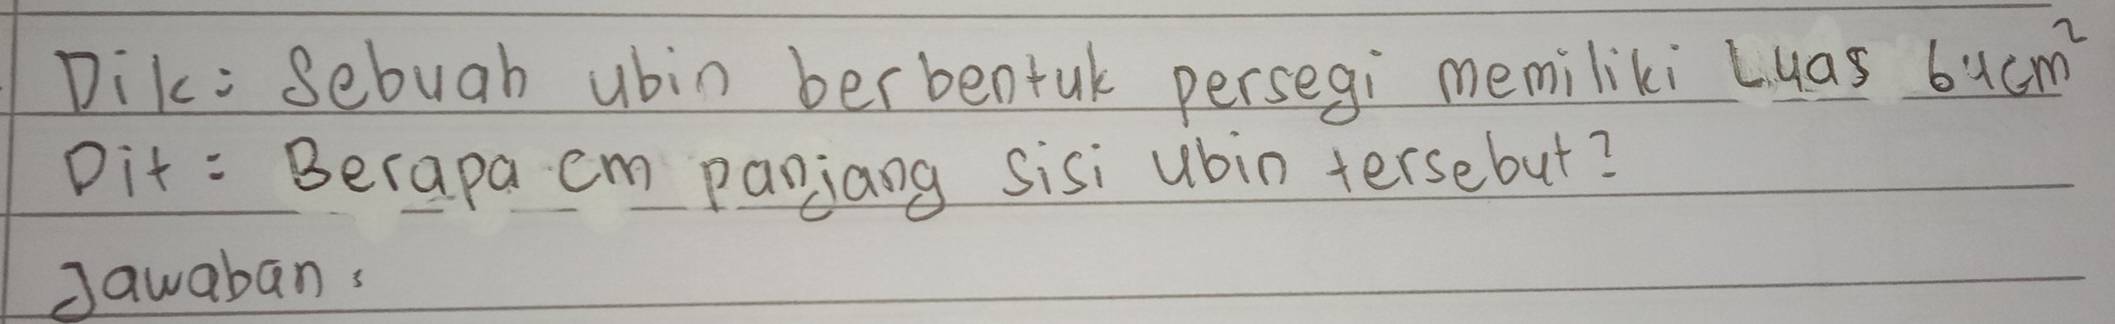 Dik: Sebuah ubin berbentuk persegi memiliki Luas 64cm²
Dit: Berapa cm panjang sisi ubin tersebut?
Jawaban: